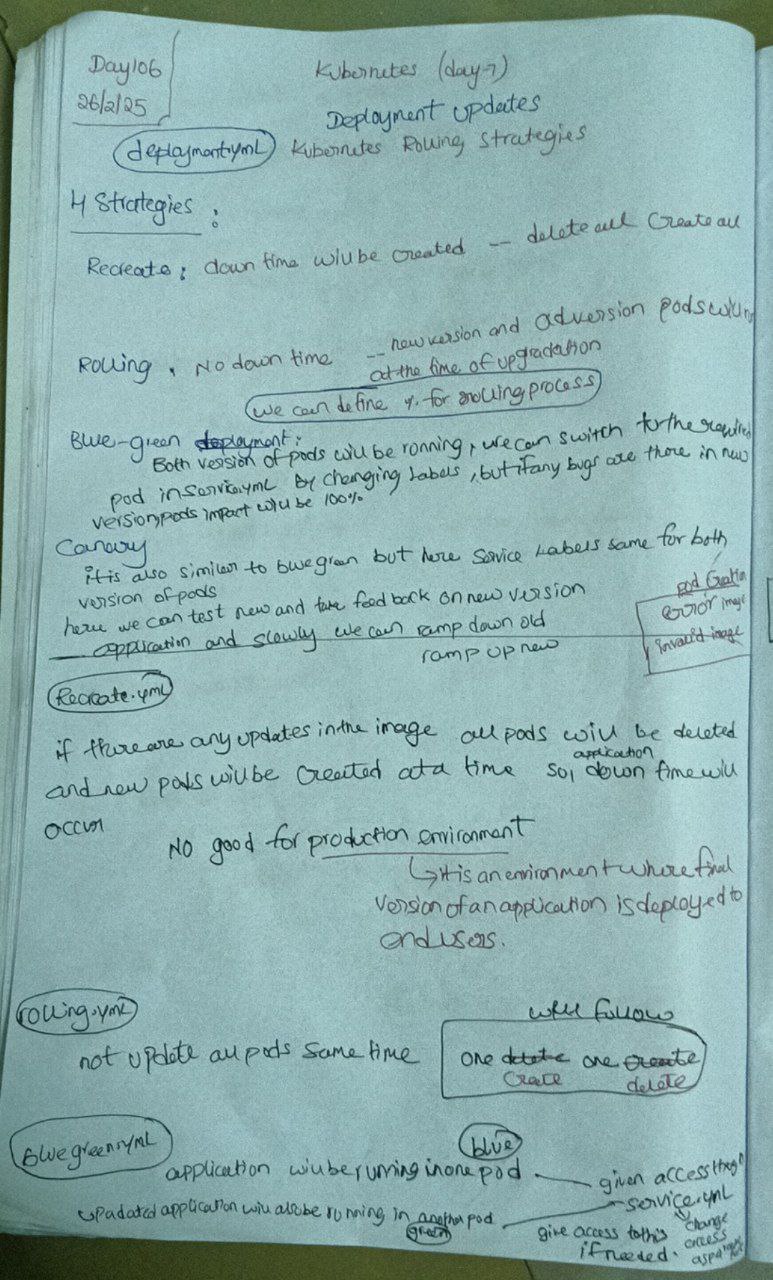 Day106
26/2/25
Kubernetes (day-7)
Deployment updates
deployment.yml Kubernetes Rolling Strategies
4 Strategies :
Recreate : down time will be created -- delete all Create all
Rolling . No down time -- new version and old version pods will
at the time of upgradation
we can define % for rolling process
Blue-green deployment:
Both version of pods will be running, we can switch to the required
pod in service.yml by changing Labels, but if any bugs are there in new
version pods impact will be 100%
Canary
it is also similar to blue green but here Service Labels same for both
version of pods
here we can test new and take feedback on new version
application and slowly we can ramp down old
ramp up new
pod
error image
invalid image
Recreate.yml
if there are any updates in the image all pods will be deleted
and new pods will be created at a time so, application down time will
occur
No good for production environment
↳ it is an environment where final
version of an application is deployed to
end users.
rolling.yml
not update all pods same time
will follow
one delete one create
Crate delete
bluegreen.yml
blue
application will be running in one pod given access
service.yml
Upadated application will also be running in another pod
green
give access to this
if needed.
change
access